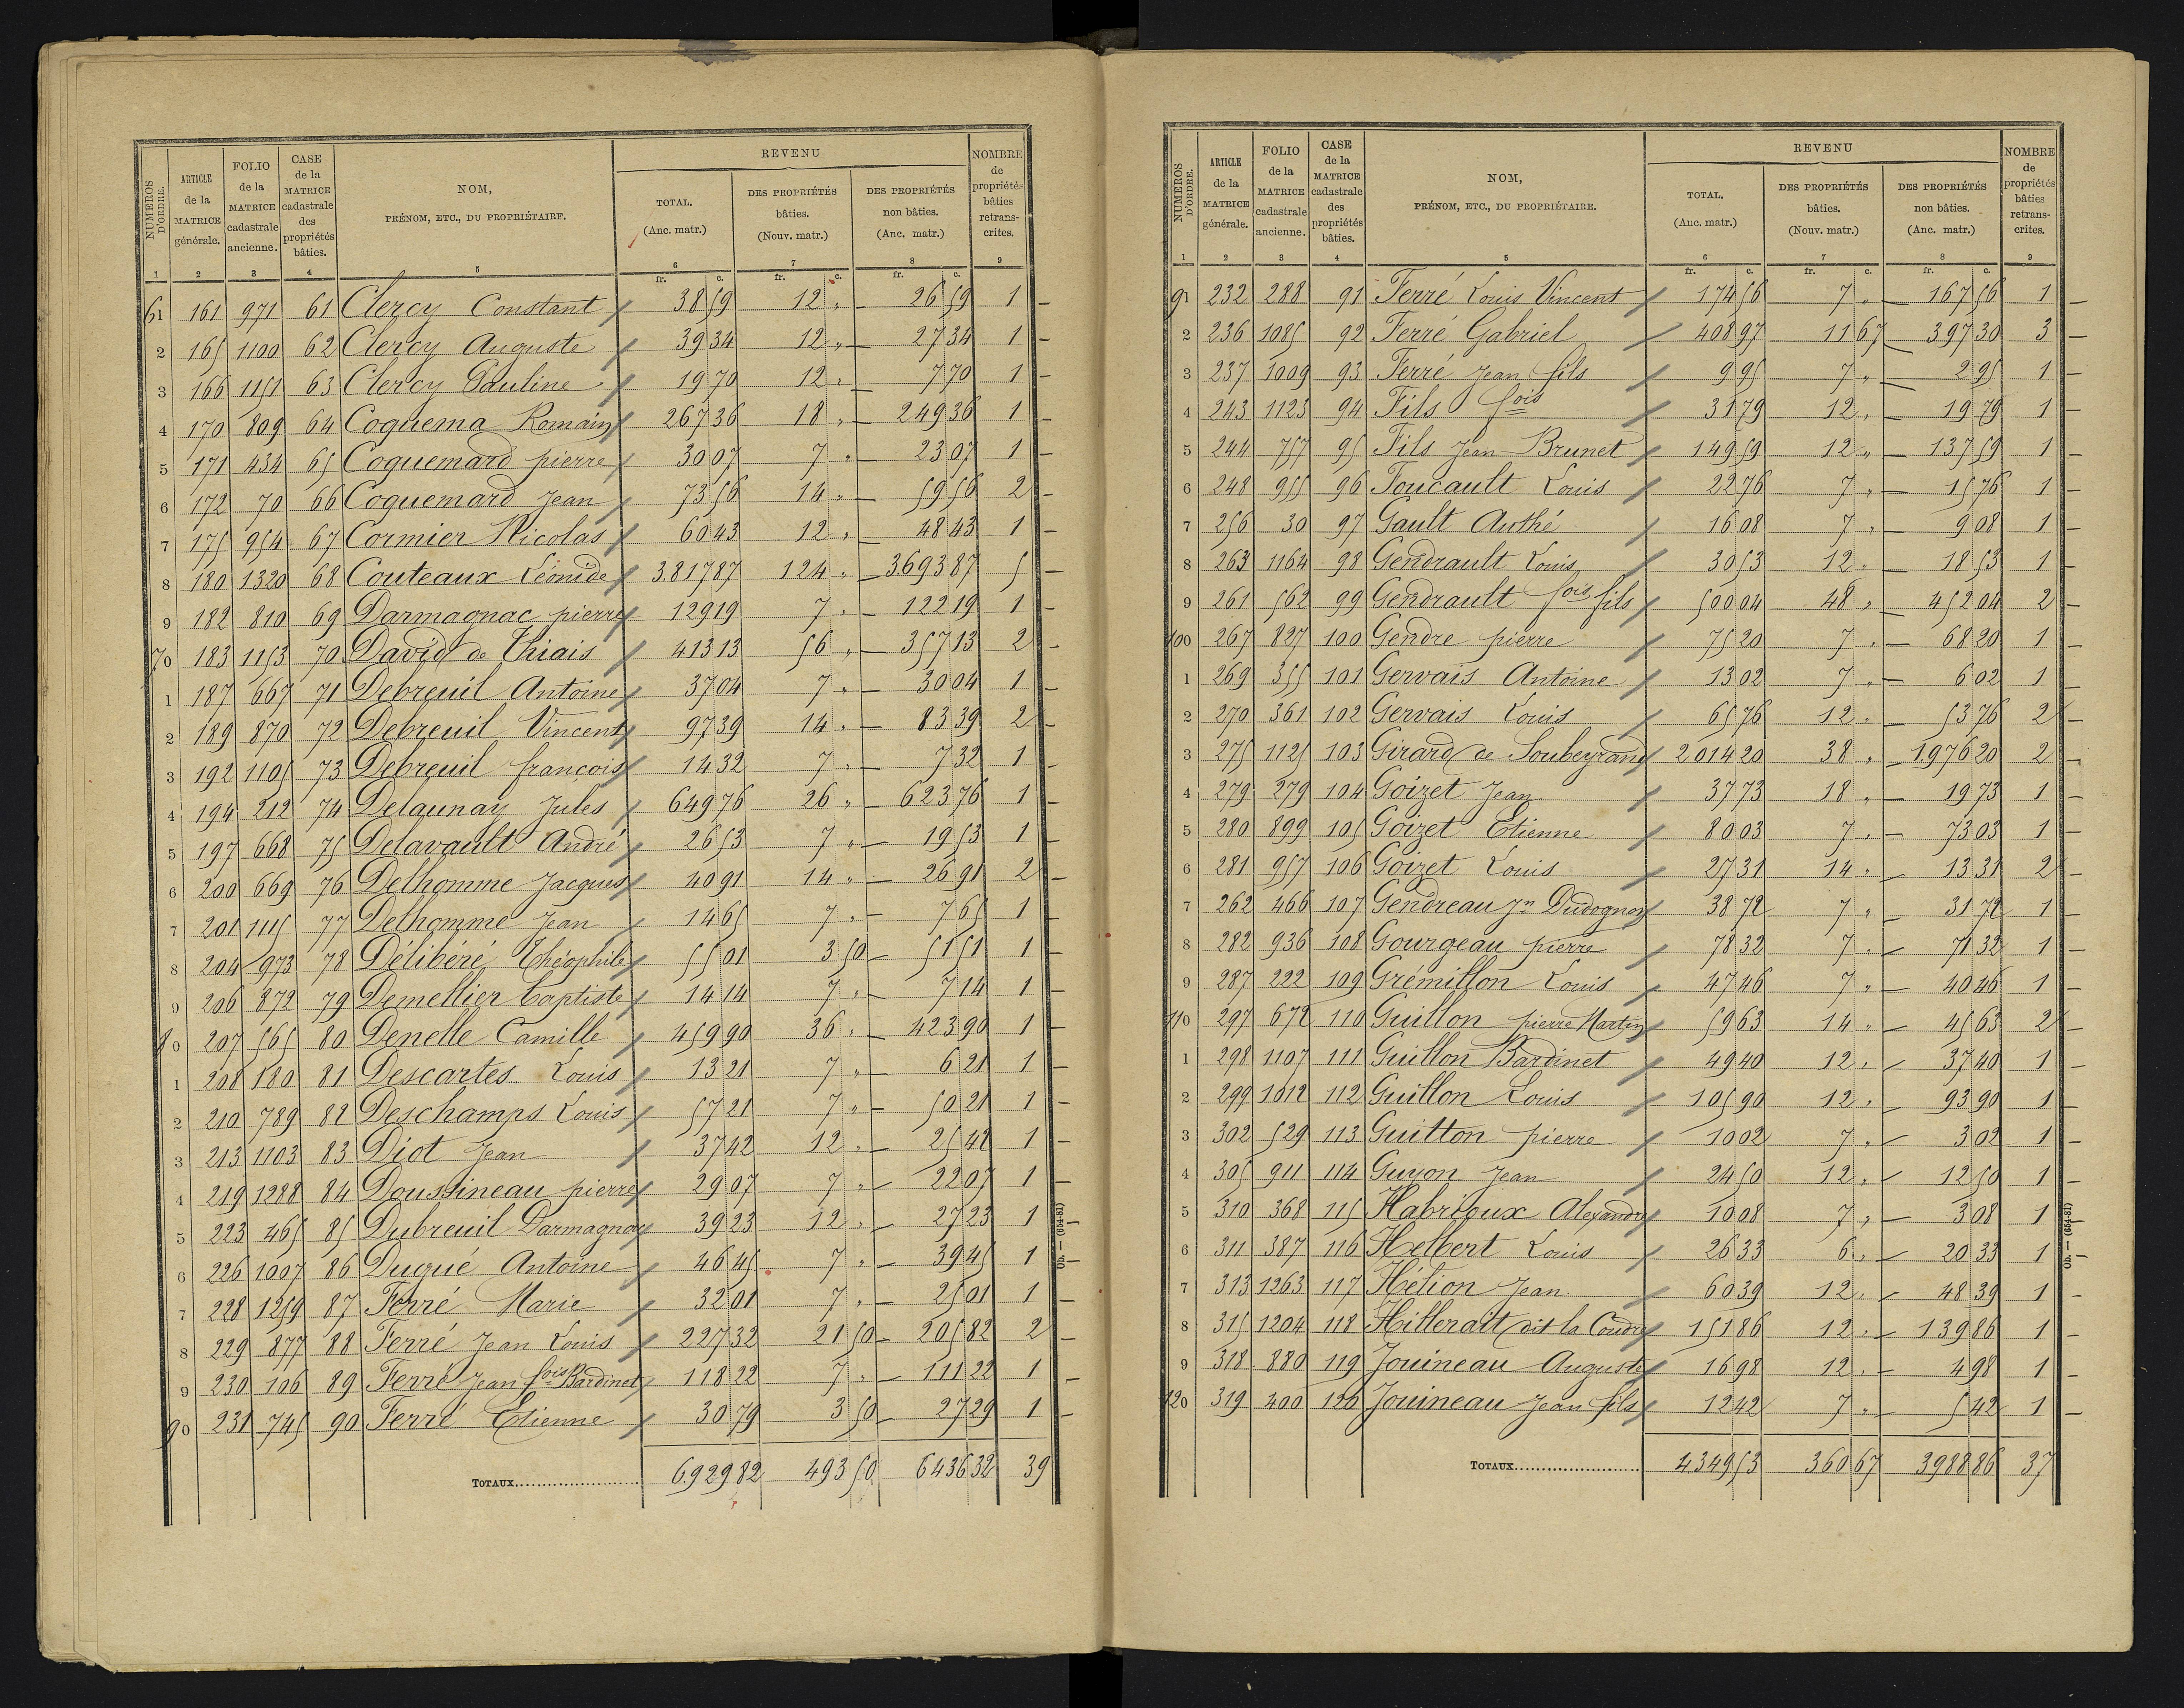 NUMÉROS D'ORDRE. ARTICLE de la MATRICE générale. FOLIO de la MATRICE cadastrale ancienne. CASE de la MATRICE cadastrale des propriétés bâties. NOM, PRÉNOM, ETC., DU PROPRIÉTAIRE. REVENU TOTAL. (Anc. matr.) DES PROPRIÉTÉS bâties. (Nouv. matr.) DES PROPRIÉTÉS non bâties. (Anc. matr.) NOMBRE de propriétés bâties retranscrites.
1 2 3 4 5 6 7 8 9
fr. c. fr. c. fr. c.
61 161 971 61 Clercy Constant 38 59 12 „ 26 59 1
2 165 1100 62 Clercy Auguste 39 34 12 „ 27 34 1
3 166 1151 63 Clercy Pauline 19 70 12 „ 7 70 1
4 170 809 64 Coquema Romain 267 36 18 „ 249 36 1
5 171 434 65 Coquemard pierre 30 07 7 „ 23 07 1
6 172 70 66 Coquemard Jean 73 56 14 „ 59 56 2
7 175 954 67 Cormier Nicolas 60 43 12 „ 48 43 1
8 180 1320 68 Couteaux Léonide 3.817 87 124 „ 3693 87 5
9 182 810 69 Darmagnac pierre 129 19 7 „ 122 19 1
70 183 1153 70 David de Thiais 413 13 56 „ 357 13 2
1 187 667 71 Debreuil Antoine 37 04 7 „ 30 04 1
2 189 870 72 Debreuil Vincent 97 39 14 „ 83 39 2
3 192 1105 73 Debreuil françois 14 32 7 „ 7 32 1
4 194 212 74 Delaunay Jules 649 76 26 „ 623 76 1
5 197 668 75 Delavault André 26 53 7 „ 19 53 1
6 200 669 76 Delhomme Jacques 40 91 14 „ 26 91 2
7 201 1115 77 Delhomme Jean 14 65 7 „ 7 65 1
8 204 973 78 Délibéré Théophile 55 01 3 50 51 51 1
9 206 872 79 Demellier baptiste 14 14 7 „ 7 14 1
80 207 565 80 Denelle Camille 459 90 36 „ 423 90 1
1 208 180 81 Descartes Louis 13 21 7 „ 6 21 1
2 210 789 82 Deschamps Louis 57 21 7 „ 50 21 1
3 213 1103 83 Diot Jean 37 42 12 „ 25 42 1
4 219 1288 84 Doussineau pierre 29 07 7 „ 22 07 1
5 223 465 85 Dubreuil Darmagnac 39 23 12 „ 27 23 1
6 226 1007 86 Dugué Antoine 46 45 7 „ 39 45 1
7 228 1259 87 Ferré Marie 32 01 7 „ 25 01 1
8 229 877 88 Ferré Jean Louis 227 32 21 50 205 82 2
9 230 106 89 Ferré Jean fois Bardinet 118 22 7 „ 111 22 1
90 231 745 90 Ferré Etienne 30 79 3 50 27 29 1
TOTAUX 6.929 82 493 50 6436 32 39
Ob. — (654-81)
NUMÉROS D'ORDRE. ARTICLE de la MATRICE générale. FOLIO de la MATRICE cadastrale ancienne. CASE de la MATRICE cadastrale des propriétés bâties. NOM, PRÉNOM, ETC., DU PROPRIÉTAIRE. REVENU TOTAL. (Anc. matr.) DES PROPRIÉTÉS bâties. (Nouv. matr.) DES PROPRIÉTÉS non bâties. (Anc. matr.) NOMBRE de propriétés bâties retranscrites.
1 2 3 4 5 6 7 8 9
fr. c. fr. c. fr. c.
91 232 288 91 Ferré Louis Vincent 174 56 7 „ 167 56 1
2 236 1085 92 Ferré Gabriel 408 97 11 67 397 30 3
3 237 1009 93 Ferré Jean fils 9 95 7 „ 2 95 1
4 243 1123 94 Fils fois 31 79 12 „ 19 79 1
5 244 757 95 Fils Jean Brunet 149 59 12 „ 137 59 1
6 248 955 96 Foucault Louis 22 76 7 „ 15 76 1
7 256 30 97 Gault Authé 16 08 7 „ 9 08 1
8 263 1164 98 Gendrault Louis 30 53 12 „ 18 53 1
9 261 562 99 Gendrault fois fils 500 04 48 „ 452 04 2
100 267 827 100 Gendre pierre 75 20 7 „ 68 20 1
1 269 355 101 Gervais Antoine 13 02 7 „ 6 02 1
2 270 361 102 Gervais Louis 65 76 12 „ 53 76 2
3 275 1125 103 Girard de Soubeyrand 2 014 20 38 „ 1.976 20 2
4 279 279 104 Goizet Jean 37 73 18 „ 19 73 1
5 280 899 105 Goizet Etienne 80 03 7 „ 73 03 1
6 281 957 106 Goizet Louis 27 31 14 „ 13 31 2
7 262 466 107 Gendreau Jn Dudognon 38 72 7 „ 31 72 1
8 282 936 108 Gourgeau pierre 78 32 7 „ 71 32 1
9 287 222 109 Grémillon Louis 47 46 7 „ 40 46 1
110 297 672 110 Guillon pierre Martin 59 63 14 „ 45 63 2
1 298 1107 111 Guillon Bardinet 49 40 12 „ 37 40 1
2 299 1012 112 Guillon Louis 105 90 12 „ 93 90 1
3 302 529 113 Guitton pierre 10 02 7 „ 3 02 1
4 305 911 114 Guyon Jean 24 50 12 „ 12 50 1
5 310 368 115 Habrioux Alexandre 10 08 7 „ 3 08 1
6 311 387 116 Helbert Louis 26 33 6 „ 20 33 1
7 313 1263 117 Hélion Jean 60 39 12 „ 48 39 1
8 315 1204 118 Hillerait dit la Coudre 151 86 12 „ 139 86 1
9 318 880 119 Jouineau Auguste 16 98 12 „ 4 98 1
120 319 400 120 Jouineau Jean fils 12 42 7 „ 5 42 1
TOTAUX 4349 53 360 67 3988 86 37
Ob. — (654-81)